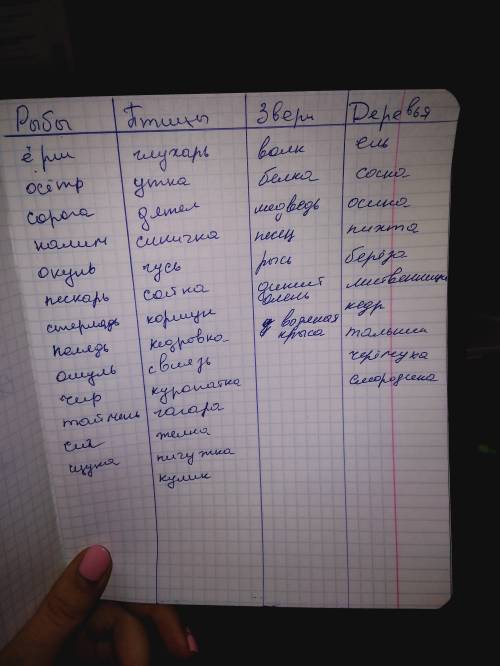 Рыбы Птицы Звери Деревья
ёрш глухарь волк ель
осётр утка белка сосна
сорога дятел медведь осина
налим синичка песец пихта
окунь гусь рысь берёза
пескарь сойка дикий олень лиственница
стерлядь коршун водяная крыса кедр
пелядь кедровка тальник
омуль свиязь черёмуха
чир куропатка смородина
таймень гагара
сиг желна
щука пичужка
кулик